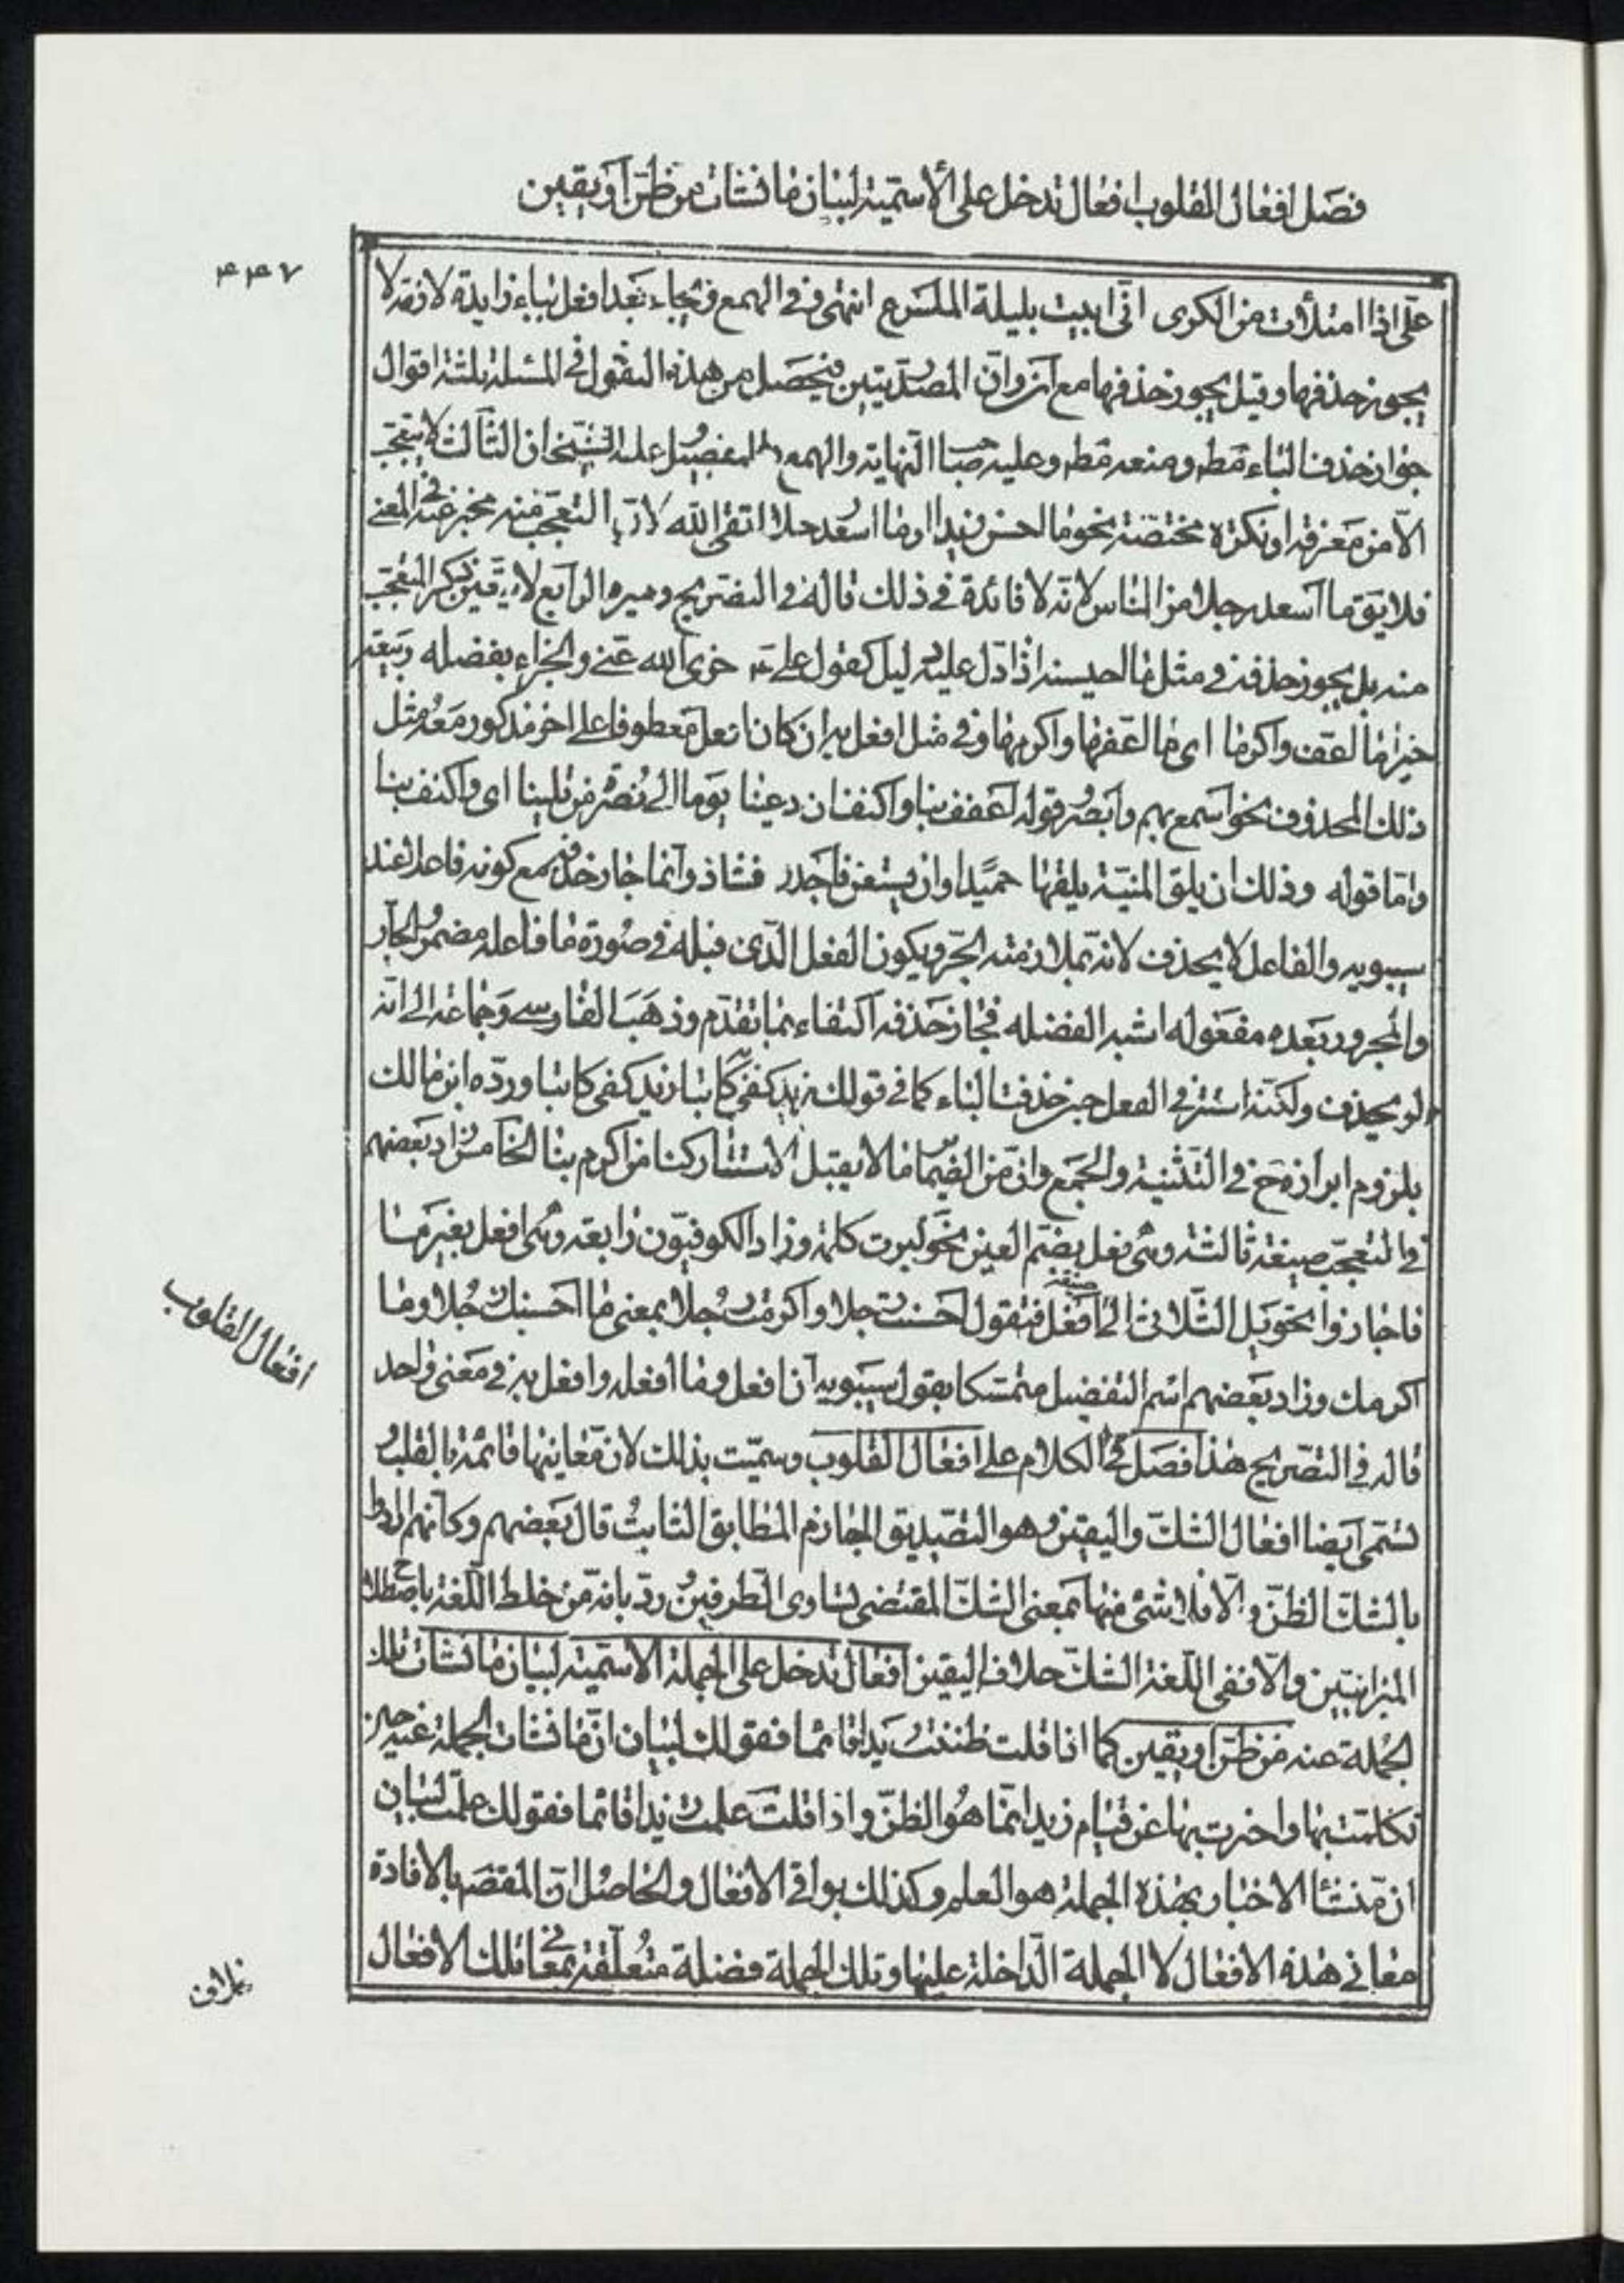 فصل افعال القلوب افعال تدخل على الأسمية لبيان ما نشأت من ظن أو يقين
۴۴۷
على اذا امتلأت من الكرى انى ابيت بليلة الملسوع انتهى وفى الهمع ويجاء بعد افعل بباء زايدة لازمة لا
يجوز حذفها وقيل يجوز حذفها مع ان وان المصدريتين فيحصل من هذه النقول فى المسئلة ثلثة اقوال
جواز حذف الباء مط ومنعه مط وعليه صبا النهاية والهمع والتفصيل عليه الشيخان الثالث لا يتعجب
الا من معرفة او نكرة مختصة نحو ما احسن زيدا وما اسعد رجلا اتقى الله لان التعجب منه مخبر عنه فى المعنى
فلا يق ما اسعد رجلا من الناس لانه لا فائدة فى ذلك قاله فى التصريح وغيره الرابع لا يتعين ذكر المتعجب
منه بل يجوز حذفه فى مثل ما احسنه اذا دل عليه دليل كقول على ع جزى الله عنى والجزاء بفضله ربيعة
خيرا ما اعف واكرما اى ما اعفها واكرمها وفى مثل افعل به ان كان افعل معطوفا على اخر مذكور معه مثل
ذلك المحذوف نحو اسمع بهم وابصر وقوله اعفف بنا واكنف ان دعينا يوما الى نصرة من يلينا اى واكنف بنا
واما قوله وذلك ان يلق المنية يلقها حميدا وان يستغن فاجدر فشاذ وانما جاز حذفه مع كونه فاعلا عند
سيبويه والفاعل لا يحذف لانه بملازمته الجر وبكون الفعل الذى قبله فى صورة ما فاعله مضمر والجار
والمجرور بعده مفعوله اشبه الفضله فجاز حذفه اكتفاء بما تقدم وذهب الفارسى وجماعة الى انه
لو يحذف ولكنه استتر فى الفعل حين حذفت الباء كما فى قولك زيد كفى به كاتبا زيد كفى كاتبا ورده ابن مالك
بلزوم ابرازه ح فى التثنية والجمع وان من الضمائر ما لا يقبل الاستتار كنا من اكرم بنا الخامس زاد بعضهم
فى التعجب صيغة ثالثة وهى فعل بضم العين نحو كبرت كلمة وزاد الكوفيون رابعة وهى افعل بغير ما
فاجازوا تحويل الثلاثى الى صيغة افعل فتقول احسنت رجلا واكرمت رجلا بمعنى ما احسنك رجلا وما
اكرمك وزاد بعضهم اسم التفضيل متمسكا بقول سيبويه ان افعل وما افعله وافعل به فى معنى واحد
قاله فى التصريح هذا فصل فى الكلام على افعال القلوب وسميت بذلك لان معانيها قائمة بالقلب و
تسمى ايضا افعال الشك واليقين وهو التصديق الجازم المطابق الثابت قال بعضهم وكانهم ارادوا
بالشك الظن والا فلا شئ منها بمعنى الشك المقتضى لتساوى الطرفين ورد بانه من خلط اللغة باصطلاح
الميزانيين والا ففى اللغة الشك خلاف اليقين افعال تدخل على الجملة الاسمية لبيان ما نشأت تلك
الجملة عنه من ظن او يقين كما اذا قلت ظننت زيدا قائما فقولك لبيان ان ما نشأت الجملة عنه حين
تكلمت بها واخبرت بها عن قيام زيد انما هو الظن واذا قلت علمت زيدا قائما فقولك علمت لبيان
ان منشأ الاخبار بهذه الجملة هو العلم وكذلك بواقى الافعال والحاصل ان المقصد بالافادة
معانى هذه الافعال لا الجملة الداخلة عليها وتلك الجملة فضلة متعلقة بمعانى تلك الافعال
افعال القلوب